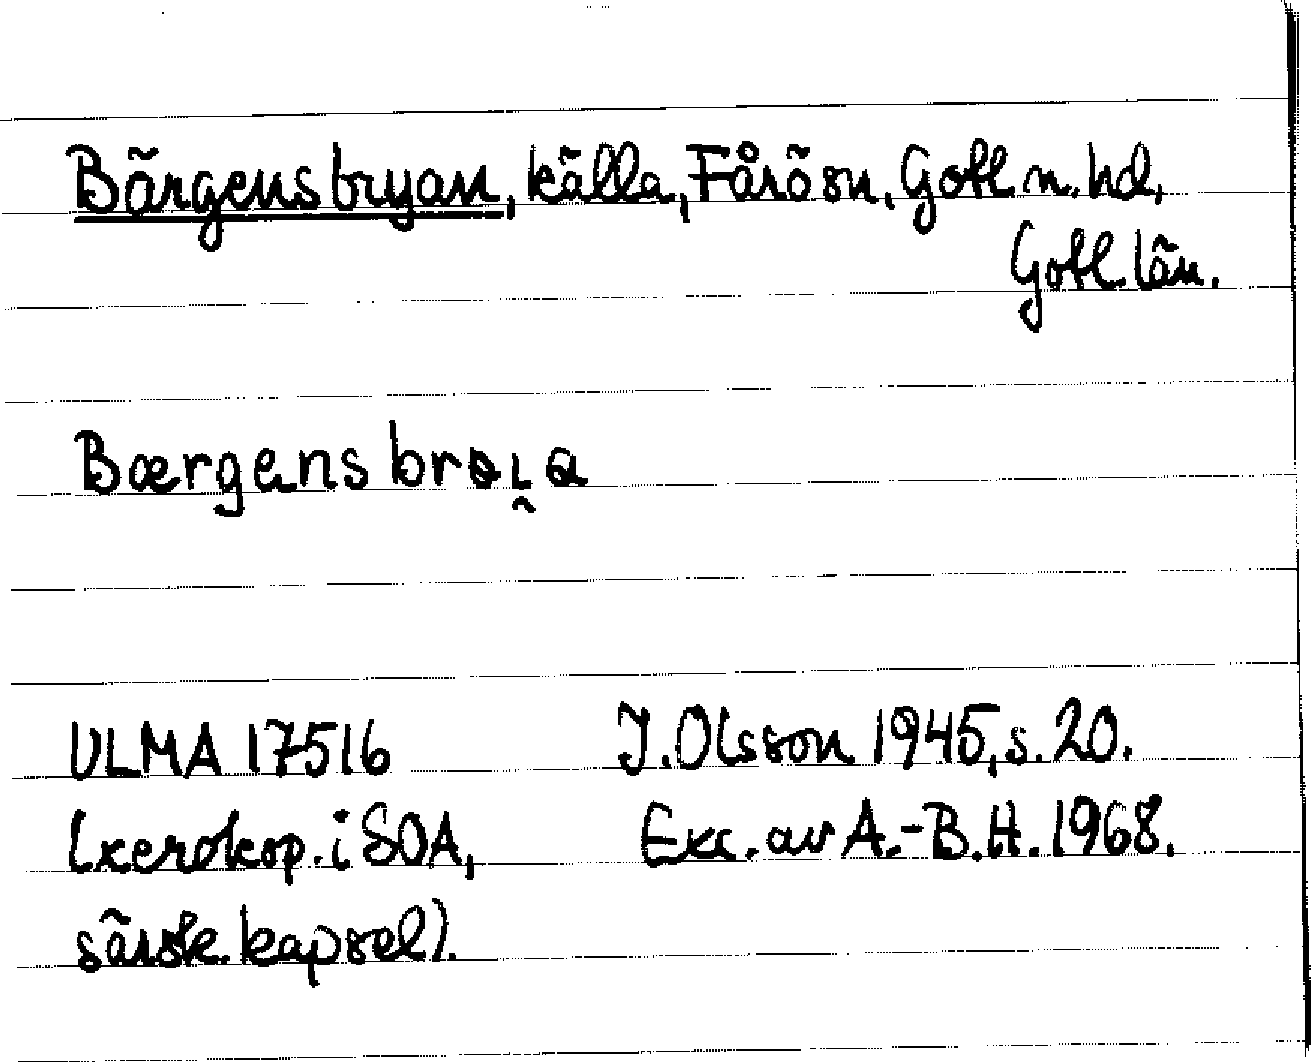 Bärgensbryan, källa, Fårö sn, Gotl. n. hd,
Gotl. län.
Bærgensbrɷɩ̯ɑ
ULMA 17516 J. Olsson 1945, s. 20.
(xerokop. i SOA, Exc. av A.-B.H. 1968.
särsk. kapsel).